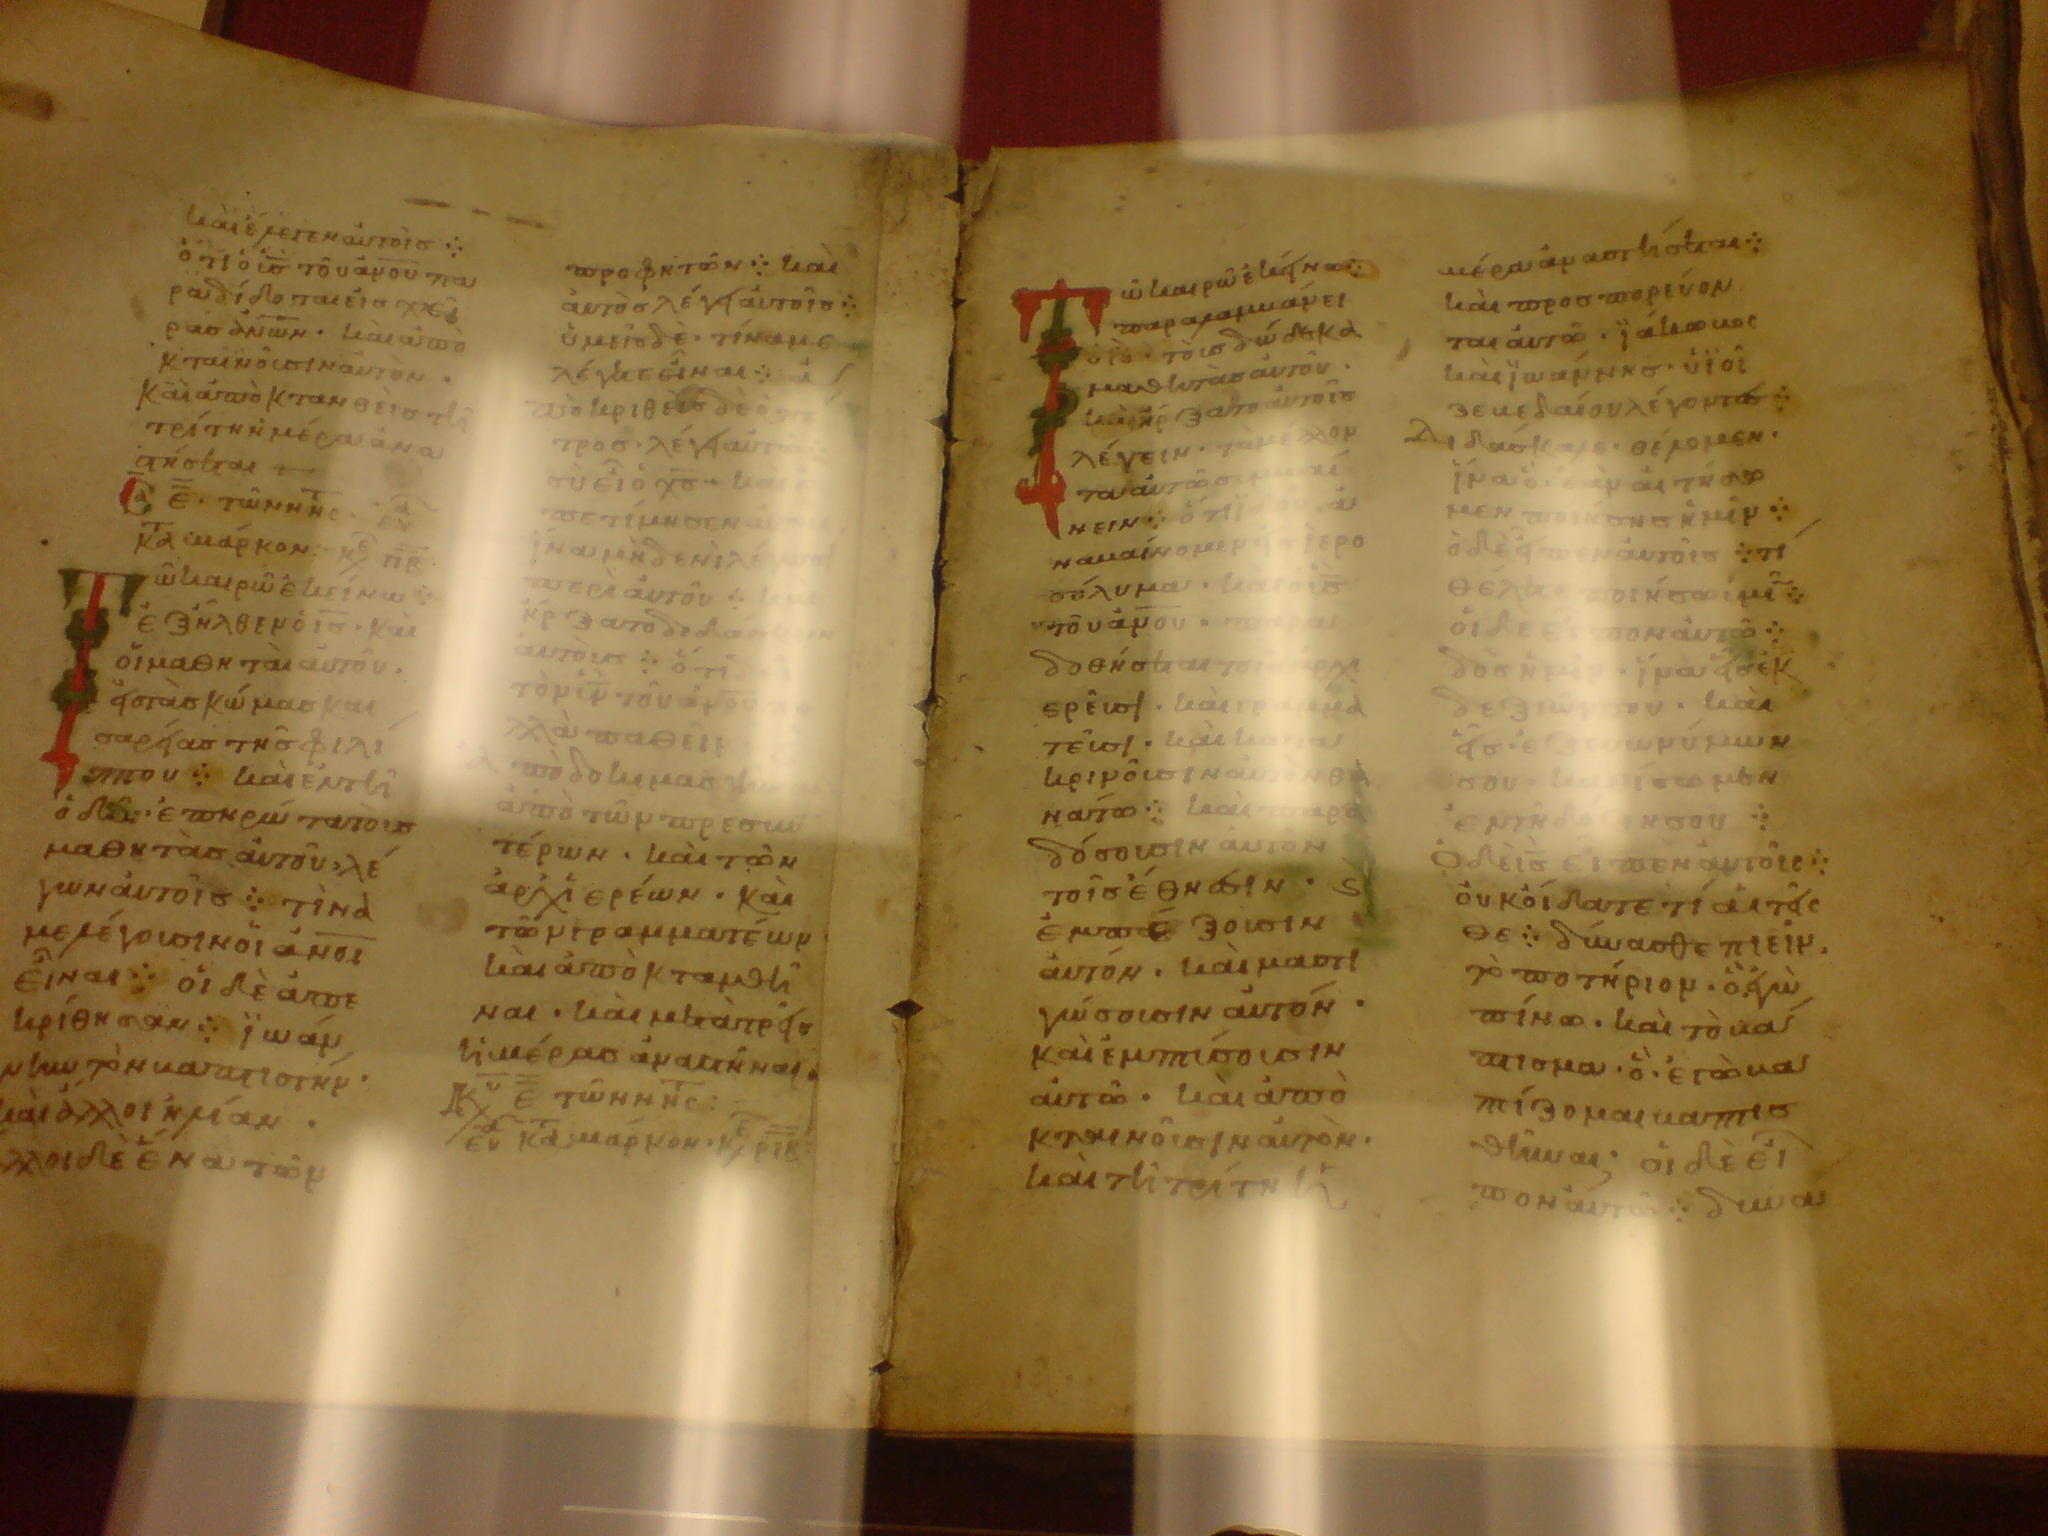 και ἔλεγεν αὐτοῖσ ⁘
ὅτι ὁ ὑ̅σ̅ τοῦ ἀν̅ου̅ πα
ραδίδοται εἰσ χεῖ
ρασ ἀν̅ω̅ν̅ · καὶ ἀπο
κτενοῦσιν αὐτὸν ·
καὶ ἀποκτανθεὶσ τῆ
τρίτη ἡμέρα ἀνα
στήσεται
ε̅ · τῶν νησ
κατ μάρκον
Τῶ καιρῶ ἐκείνω
ἐξῆλθεν ὁ ι̅σ̅ · καὶ
οἱ μαθηταὶ αὐτοῦ ·
εἰσ τὰσ κώμασ και
σαρείασ τῆσ φιλί
ππου ⁘ καὶ ἐν τῆ
ὁδῶ · ἐπηρώτα τοὺσ
μαθητὰσ αὐτοῦ λέ
γων αὐτοῖσ ⁘ τίνα
με λέγουσιν οἱ ἀν̅οι̅
εἶναι ⁘ οἱ δὲ ἀπε
κρίθησαν ⁘ ϊωάν
νην τὸν βαπτιστήν ·
καὶ ἄλλοι ἠλίαν ·
ἄλλοι δὲ ἕνα τῶν
προφητῶν ⁘ καὶ
αὐτὸσ λέγει αὐτοῖσ ⁘
ὑμεῖσ δὲ · τίνα με
λέγετε εἶναι ⁘ ἀ
ποκριθεὶσ δὲ ὁ πέ
τροσ · λέγει αὐτῶ
σὺ εἶ ὁ χ̅σ̅ · καὶ ἐ
πετίμησεν αὐτοῖσ
ἵνα μηδενὶ λέγωσι
περὶ αὐτοῦ ⁘ και
ἤρξατο διδάσκειν
αὐτοὺσ ⁘ ὅτι δεῖ
τὸν ὑ̅ν̅ τοῦ ἀν̅ου̅ πο
λλὰ παθεῖν
ἀποδοκιμασθῆναι
ἀπὸ τῶν πρεσβυ
τέρων · καὶ τῶν
ἀρχιερέων · καὶ
τῶν γραμματέων
καὶ ἀποκτανθῆ
ναι · καὶ μετὰ τρεῖσ
ἡμέρασ ἀναστῆναι
ε̅ τῶν νησ
κατ μάρκον
Τῶ καιρῶ ἐκείνω ⁘
παραλαμβάνει
ὁ ι̅σ̅ · τοὺσ δώδεκα
μαθητὰσ αὐτοῦ ·
καὶ ἤρξατο αὐτοῖσ
λέγειν · τὰ μέλλον
τα αὐτῶ συμβαί
νειν ⁘ ὅτι ἰδοὺ ἀ
ναβαίνομεν εἰσ ἱερο
σόλυμα · καὶ ὁ ὑ̅σ̅
τοῦ ἀν̅ου̅ · παρα
δοθήσεται τοῖσ ἀρχι
ερεῦσι · καὶ γραμμα
τεῦσι · καὶ κατα
κρινοῦσιν αὐτὸν θα
νάτω ⁘ καὶ παρα
δώσουσιν αὐτὸν
τοῖσ ἔθνεσιν ·
ἐμπαίξουσιν
αὐτόν · καὶ μαστι
γώσουσιν αὐτόν ·
καὶ ἐμπτύσουσιν
αὐτῶ · καὶ ἀπο
κτενοῦσιν αὐτὸν ·
καὶ τῆ τρίτη ἡ
μέρα ἀναστήσεται ⁘
καὶ προσπορεύον
ται αὐτῶ · ϊάκωβοσ
καὶ ϊωάννησ · υἱοὶ
ζεβεδαίου λέγοντεσ ⁘
Διδάσκαλε · θέλομεν ·
ἵνα ὃ ἐὰν αἰτήσω
μεν ποιήσησ ἡμῖν ⁘
ὁ δὲ εἶπεν αὐτοῖσ ⁘ τί
θέλετε ποιήσω ὑμῖν ⁘
οἱ δὲ εἶπον αὐτῶ ⁘
δὸσ ἡμῖν · ἵνα εἷσ ἐκ
δεξιῶν σου · καὶ
εἷσ ἐξ εὐωνύμων
σου · καθίσωμεν
ἐν τῆ δόξη σου ⁘
Ὁ δὲ ι̅σ̅ εἶπεν αὐτοῖσ ⁘
οὐκ οἴδατε τί αἰτεῖσ
θε ⁘ δύνασθε πιεῖν
τὸ ποτήριον · ὃ ἐγὼ
πίνω · καὶ τὸ βά
πτισμα · ὃ ἐγὼ βα
πτίζομαι βαπτισ
θῆναι · οἱ δὲ εἶ
πον αὐτῶ ⁘ δυνά